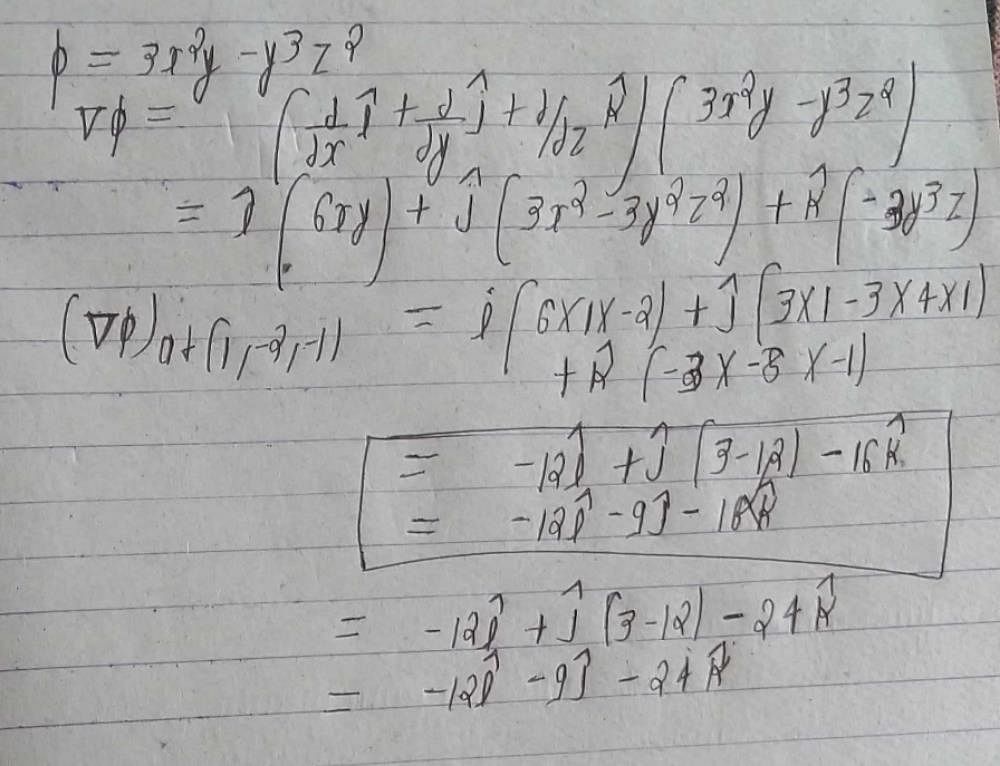 ϕ = 3x²y - y³z²
∇ϕ = (d/dx î + d/dy ĵ + d/dz k̂) (3x²y - y³z²)
= î (6xy) + ĵ (3x² - 3y²z²) + k̂ (-3y³z)
(∇ϕ)at(1,-2,-1) = î (6x1x-2) + ĵ (3x1-3x4x1)
+ k̂ (-3x-8x-1)
= -12î + ĵ (3-12) - 16k̂
= -12î - 9ĵ - 16k̂
= -12î + ĵ (3-12) - 24k̂
= -12î - 9ĵ - 24k̂